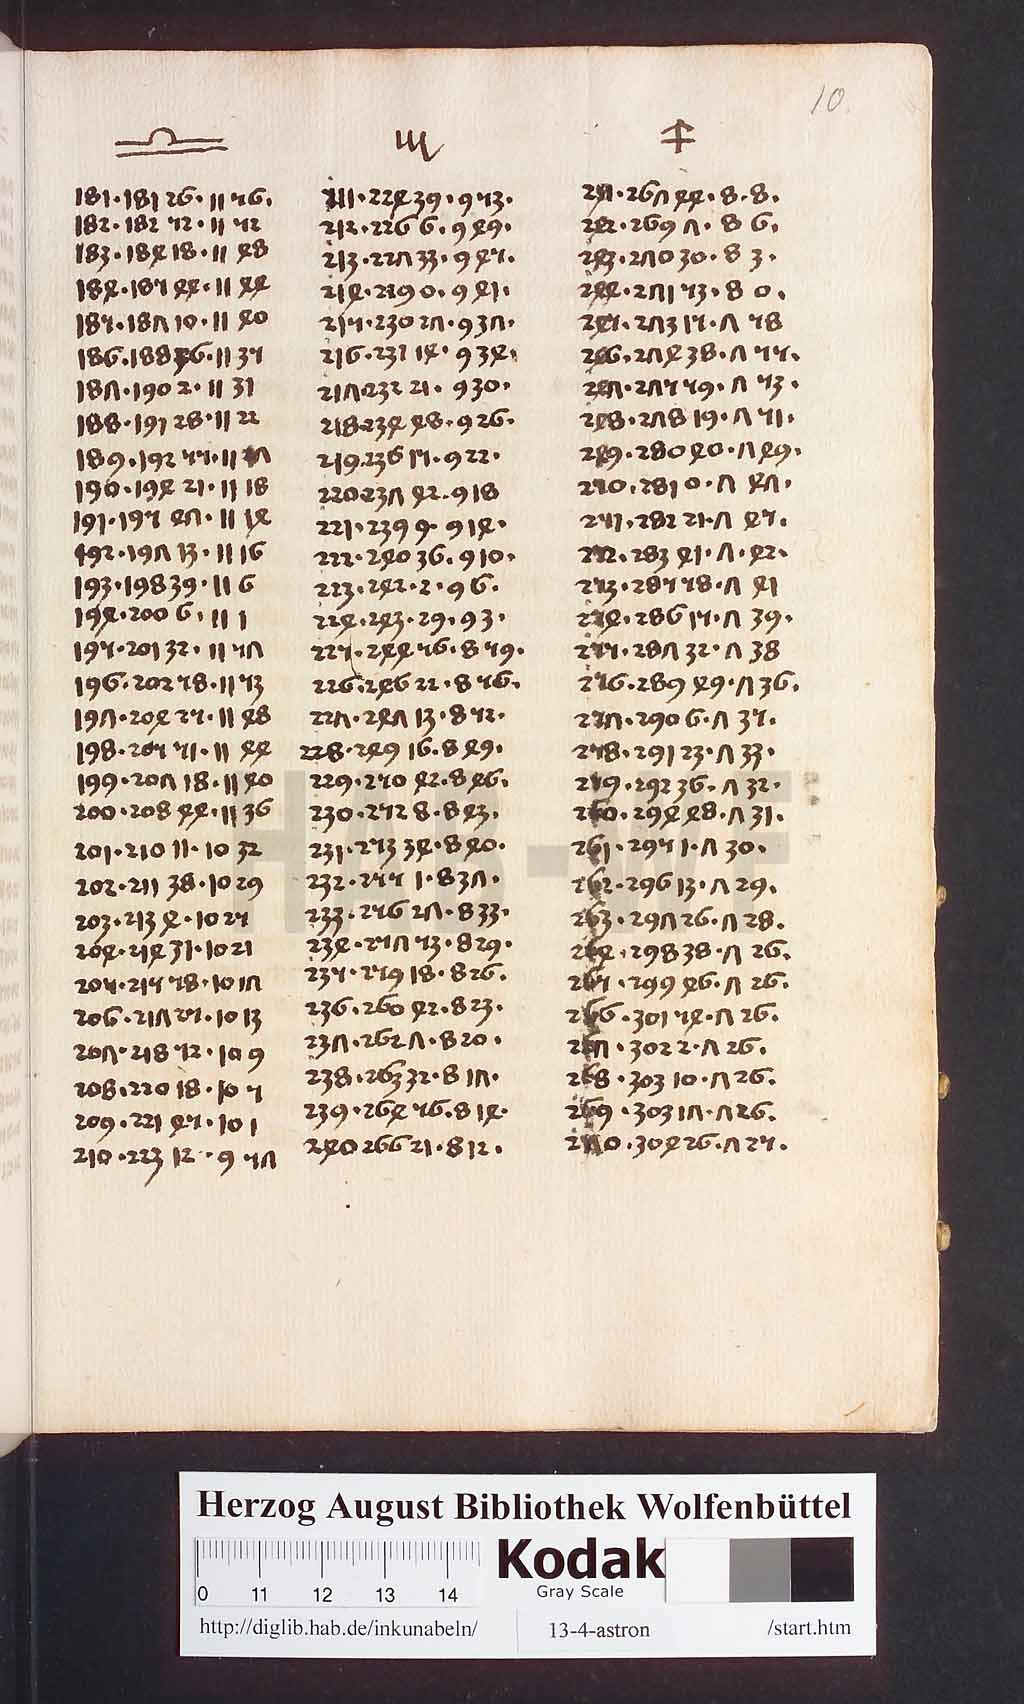 10.
♎
181·181 26·11 56.
182·182 52·11 52
183·184 18·11 48
184·185 44·11 44
185·187 10·11 40
186·188 36·11 35
187·190 2·11 31
188·191 28·11 22
189·192 55·11
190·194 21·11 18
191·195 47·11 14
192·197 13·11 16
193·198 39·11 6
194·200 6·11 1
195·201 32·11 57
196·202 58·11 53
197·204 25·11 48
198·205 51·11 44
199·207 18·11 40
200·208 44·11 36
201·210 11·10 32
202·211 38·10 29
203·213 4·10 25
204·214 31·10 21
205·215 58·10 17
206·217 25·10 13
207·218 52·10 9
208·220 18·10 5
209·221 45·10 1
210·223 12·9 57
♏
211·224 39·9 53.
212·226 6·9 49.
213·227 33·9 45.
214·229 0·9 41.
215·230 27·9 37.
216·231 14·9 34.
217·232 21·9 30.
218·234 48·9 26.
219·236 15·9 22.
220·237 42·9 18
221·239 9·9 14.
222·240 36·9 10.
223·242·2·9 6.
224·243·29·9 3.
225·244 56·8 59.
226·246 22·8 56.
227·247 13·8 52.
228·249 16·8 49.
229·250 42·8 46.
230·252 8·8 43.
231·253 34·8 40.
232·255 1·8 37.
233·256 27·8 33.
234·257 53·8 29.
235·259 18·8 26.
236·260 42·8 23.
237·262 7·8 20.
238·263 32·8 17.
239·264 56·8 14.
240 266 21·8 12.
♐
241·267 44·8·8.
242·269 7·8 6.
243·270 30·8 3.
244·271 53·8 0.
245·273 15·7 58
246·274 38·7 55.
247·275 59·7 53.
248·278 19·7 51.
249·280 40·7 49.
250·281 0·7 47.
251·282 21·7 45.
252·283 41·7·42.
253·285 58·7 41
254·286 15·7 39.
255·287 32·7 38
256·289 49·7 36.
257·290 6·7 35.
258·291 23·7 33.
259·292 36·7 32.
260·294 48·7 31.
261·295 1·7 30.
262·296 13·7 29.
263·297 26·7 28.
264·298 38·7 26.
265·299 46·7 26.
266·301 54·7 26.
267·302 2·7 26.
268·303 10·7 26.
269·303 17·7 26.
270·304 26·7 25.
HAB-WF
Herzog August Bibliothek Wolfenbüttel
0 11 12 13 14
Kodak
Gray Scale
http://diglib.hab.de/inkunabeln/ 13-4-astron /start.htm